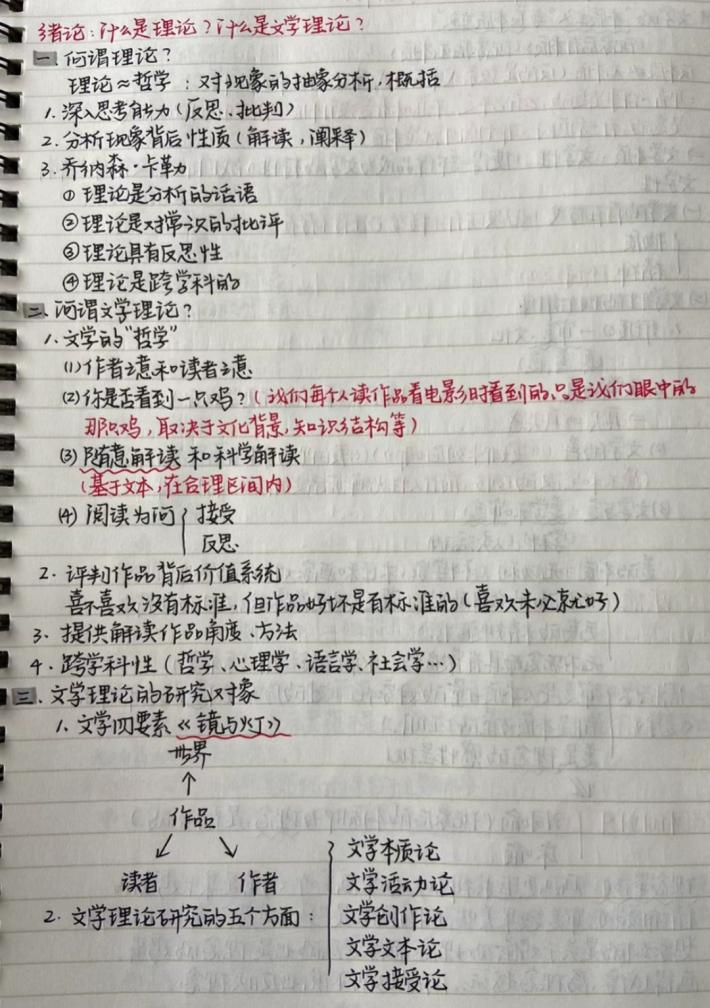 绪论:什么是理论?什么是文学理论?
一 何谓理论?
理论≈哲学:对现象的抽象分析,概括
1.深入思考能力(反思、批判)
2.分析现象背后性质(解读,阐释)
3.乔纳森·卡勒
①理论是分析的话语
②理论是对常识的批评
③理论具有反思性
④理论是跨学科的
二、何谓文学理论?
1.文学的"哲学"
(1)作者之意和读者之意
(2)你是否看到一只鸡?(我们每个人读作品看电影时看到的,只是我们眼中的
那只鸡,取决于文化背景,知识结构等)
(3)随意解读 和科学解读
(基于文本,在合理区间内)
(4)阅读为何{接受
反思
2.评判作品背后价值系统
喜不喜欢没有标准,但作品好坏是有标准的(喜欢未必就好)
3.提供解读作品角度、方法
4.跨学科性(哲学、心理学、语言学、社会学…)
三、文学理论的研究对象
1.文学四要素《镜与灯》
世界
↑
作品
↙ ↘
读者 作者
2.文学理论研究的五个方面:{文学本质论
文学活动论
文学创作论
文学文本论
文学接受论